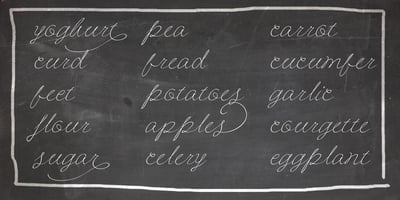 yoghurt pea carrot
curd bread cucumber
beet potatoes garlic
flour apples courgette
sugar celery eggplant